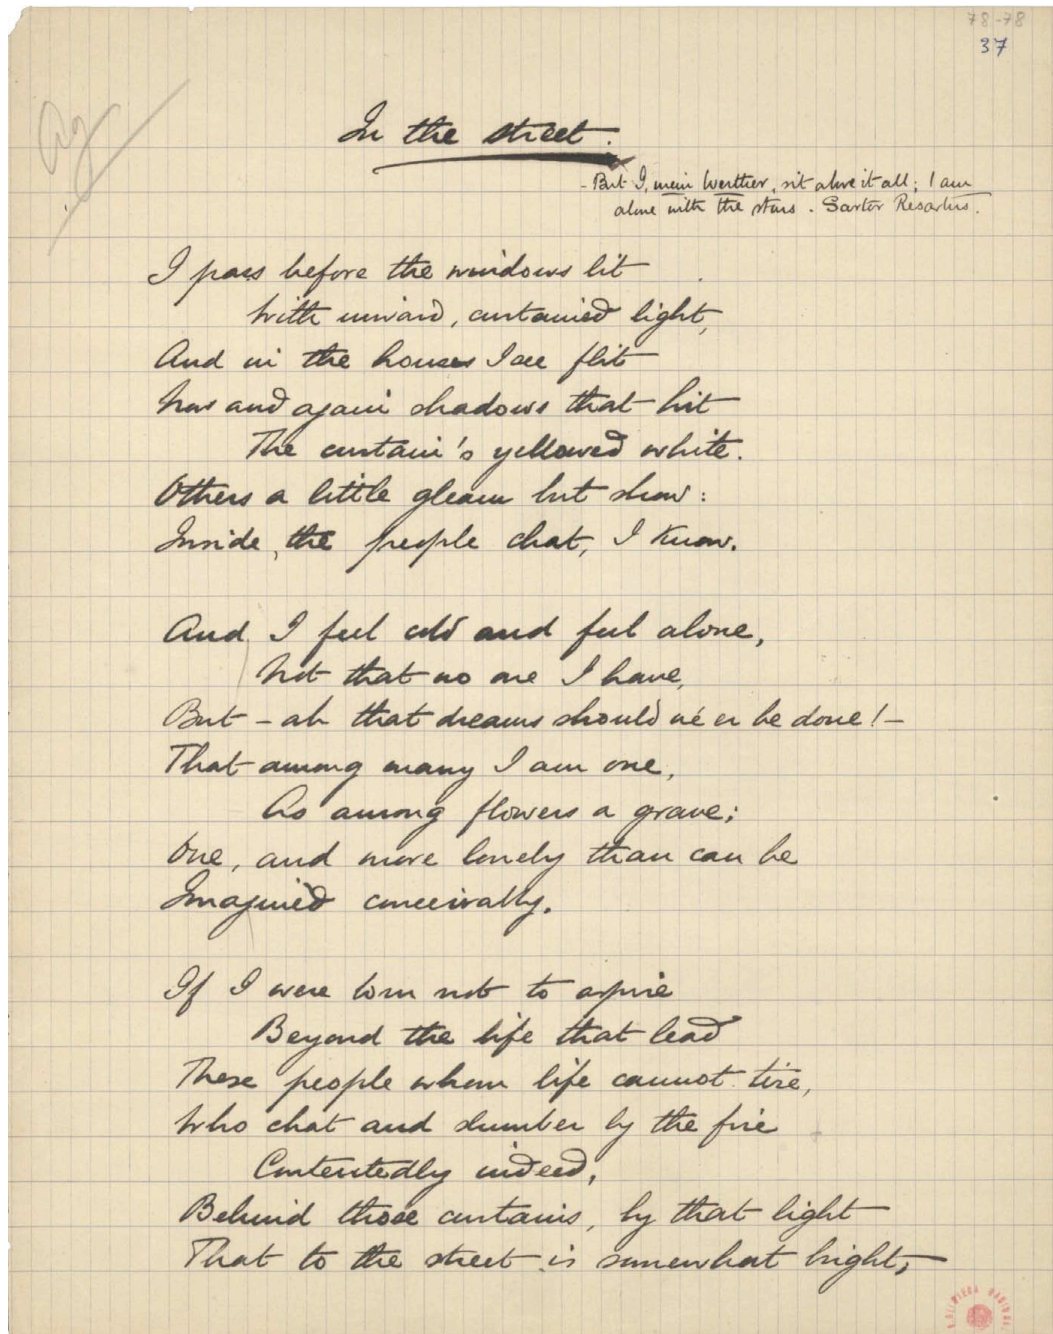 78-78
37
In the street.
- But I, mein Werther, sit above it all; I am
alone with the stars. Sartor Resartus.
I pass before the windows lit
With inward, curtained light,
And in the houses I see flit
Now and again shadows that hit
The curtain's yellowed white.
Others a little gleam but show:
Inside, the people chat, I know.
And I feel cold and feel alone,
Not that no one I have,
But - ah that dreams should ne'er be done! -
That among many I am one,
As among flowers a grave;
One, and more lonely than can be
Imagined conceivably.
If I were born not to aspire
Beyond the life that lead
These people whom life cannot tire,
Who chat and slumber by the fire
Contentedly indeed,
Behind those curtains, by that light
That to the street is somewhat bright;